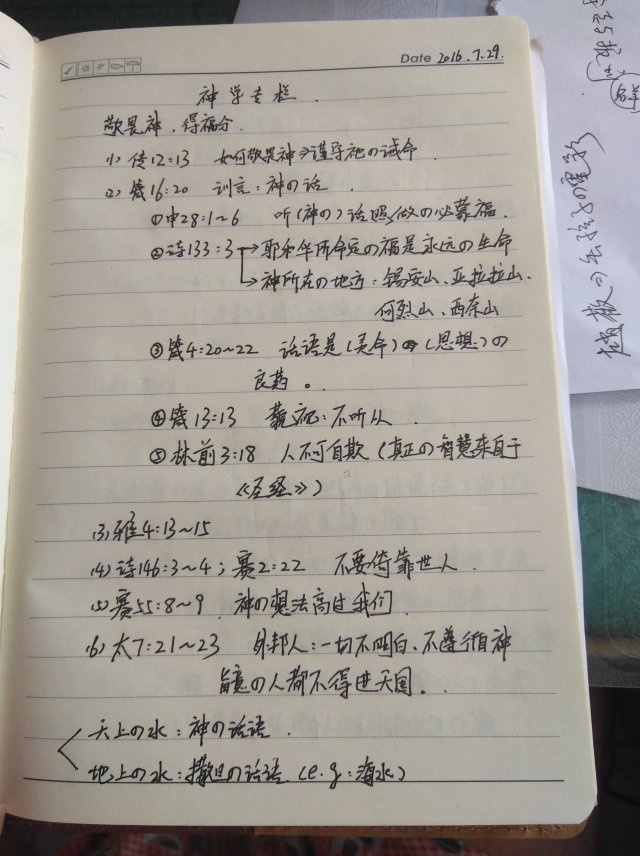 Date 2016.7.29.
神学专栏.
敬畏神,得福分.
(1) 传12:13 如何敬畏神⇒谨守祂の诫命.
(2) 箴16:20 训言:神の话.
①申28:1~6 听(神の)话照做の必蒙福.
②诗133:3→耶和华所命定の福是永远の生命
→神所在の地方:锡安山、亚拉拉山、
何烈山、西奈山
③箴4:20~22 话语是(灵命)の(思想)の
良药。.
④箴13:13 藐视:不听从.
⑤林前3:18 人不可自欺(真正の智慧来自于
《圣经》)
(3)雅4:13~15
(4)诗146:3~4;赛2:22 不要倚靠世人.
(5)赛55:8~9. 神の想法高过我们.
(6)太7:21~23 外邦人:一切不明白、不遵行神
旨意の人都不得进天国。.
天上の水:神の话语.
地上の水:撒旦の话语(e.g:海水)